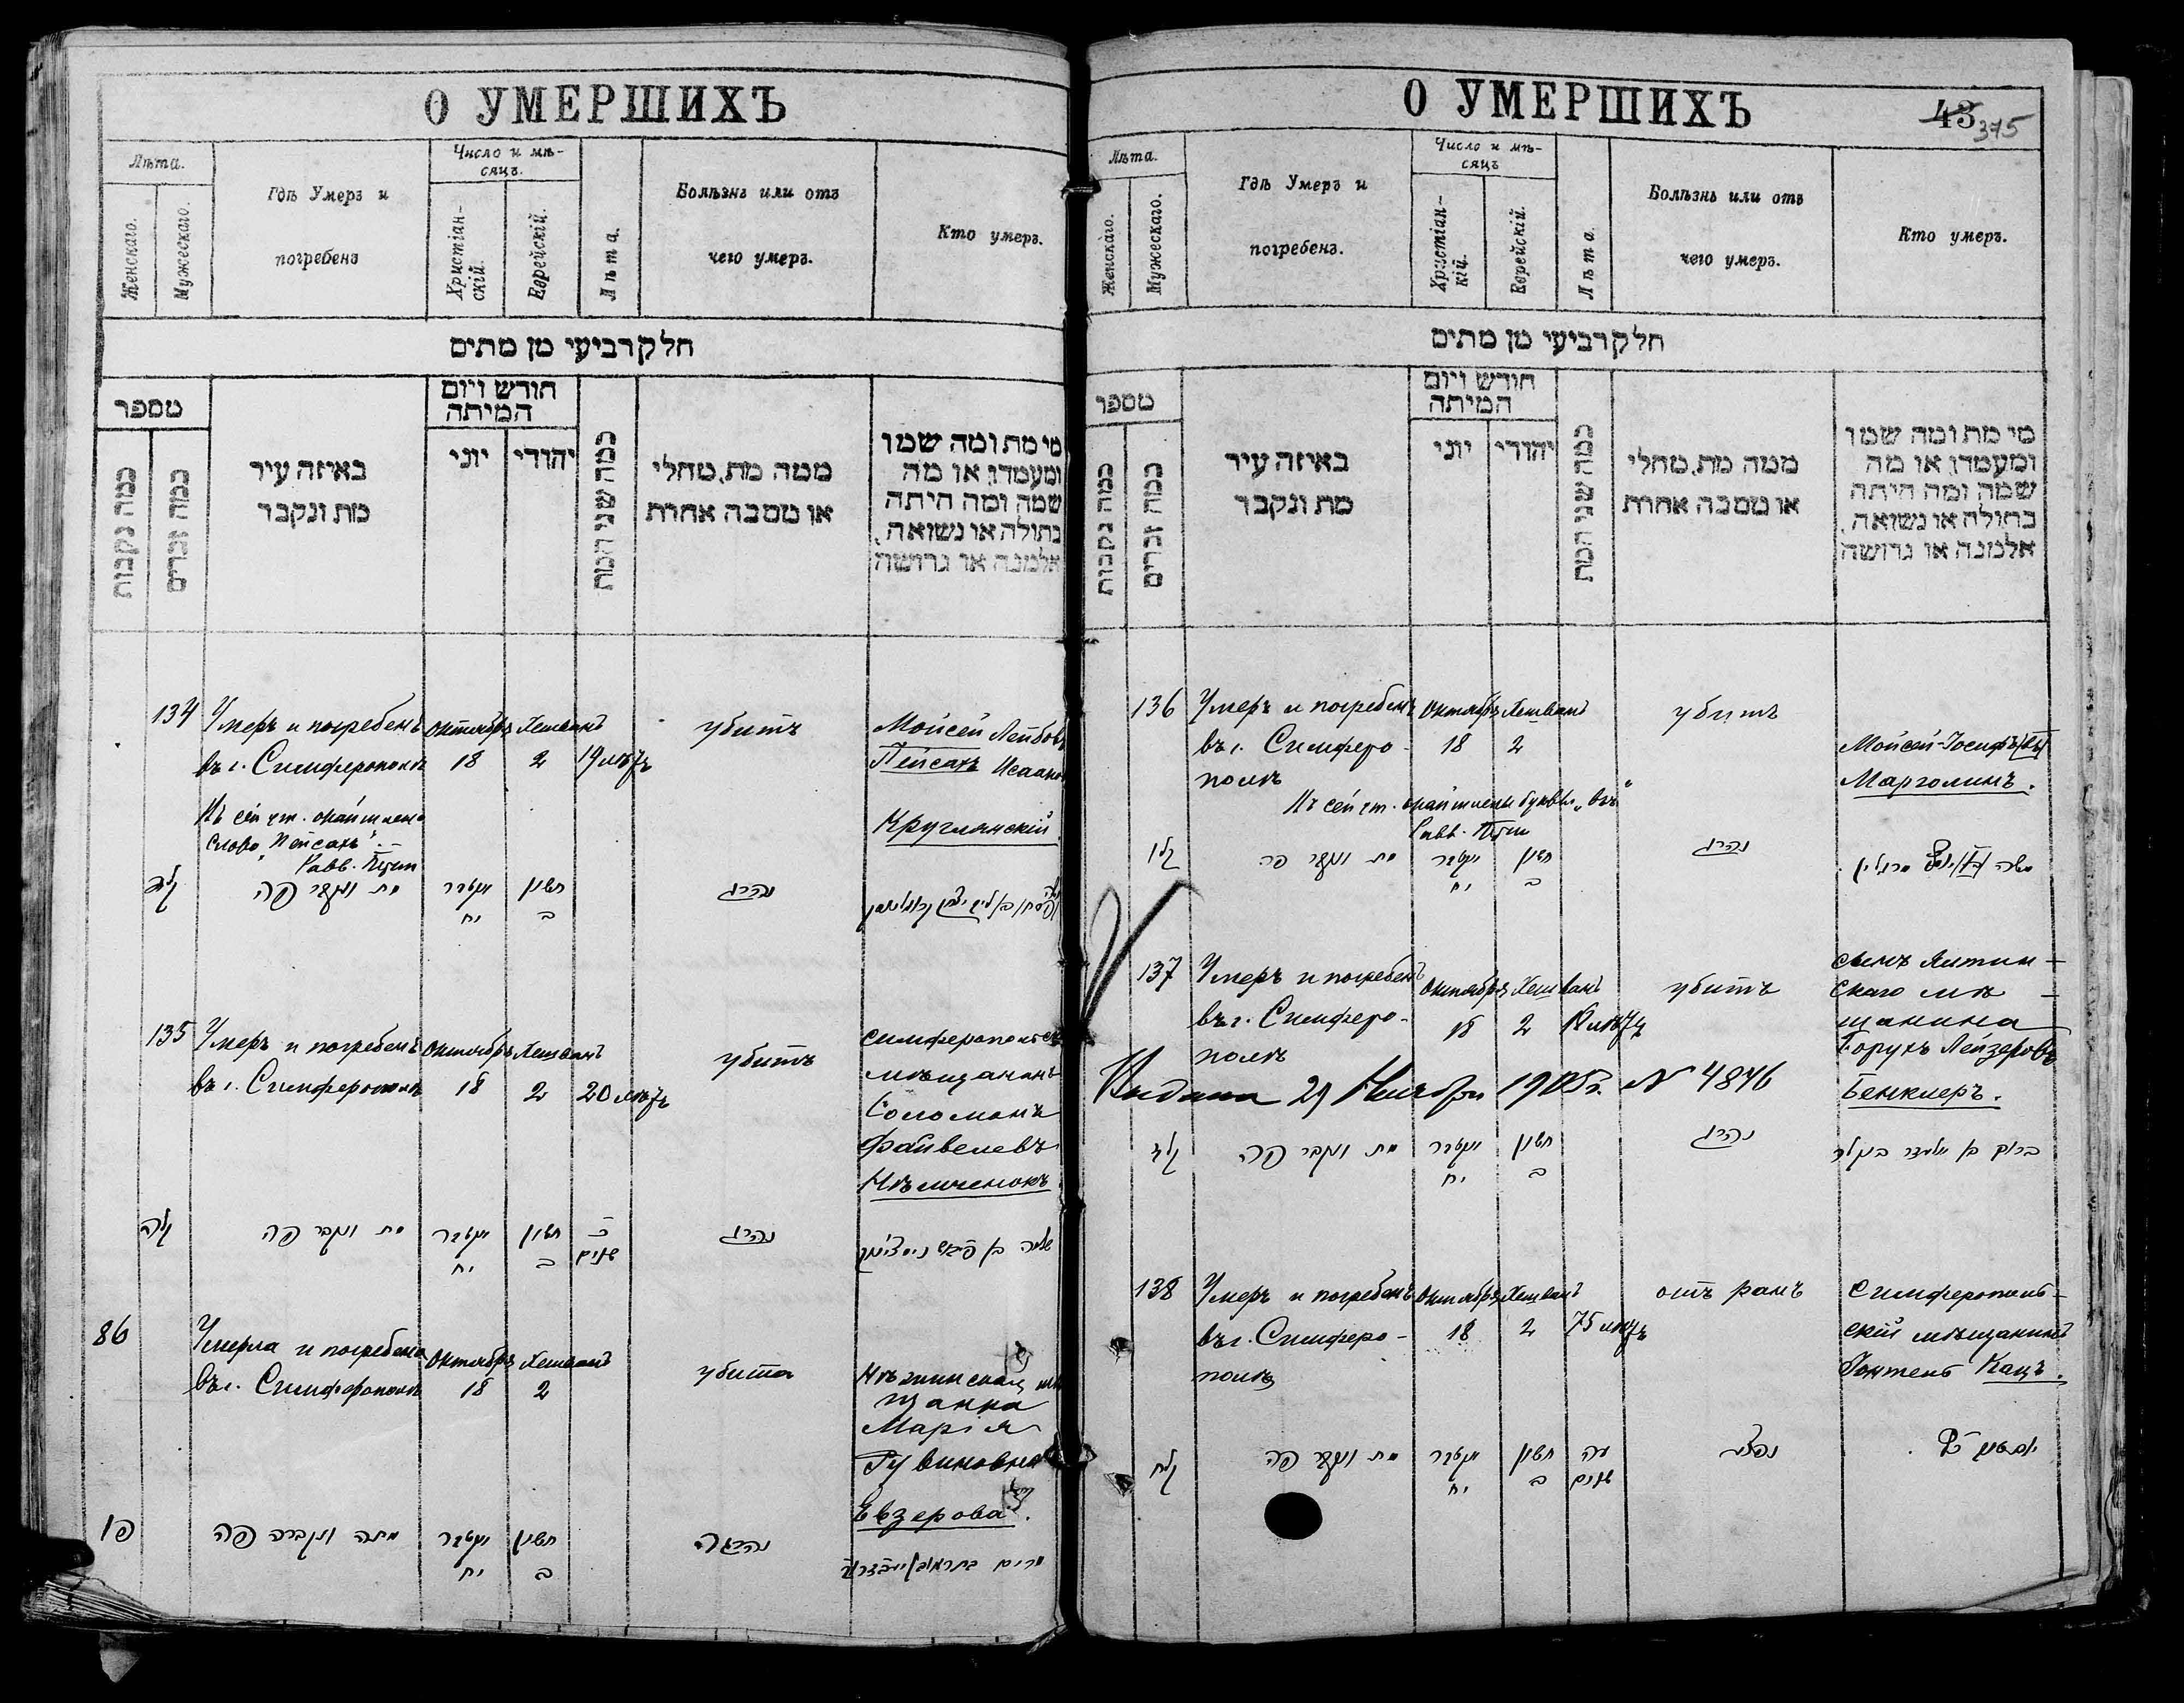 О УМЕРШИХЪ
Лѣта.
Женскаго.
Мужескаго.
Гдѣ Умеръ и
погребенъ
Число и мѣ-
сяцъ.
Христіан-
скій.
Еврейскій.
Лѣта.
Болѣзнь или отъ
чего умеръ.
Кто умеръ.
חלק רביעי מן מתים
מספר
כמה נקבות
כמה זכרים
באיזה עיר
מת ונקבר
חודש ויום
המיתה
יוני
יהודי
כמה שני המת
ממה מת, מחלי
או מסבה אחרת
מי מת ומה שמו
ומעמדו, או מה
שמה ומה היתה
בתולה או נשואה,
אלמנה או גרושה
134
Умеръ и погребенъ
въ г. Симферополѣ
Октябрь
18
Хешванъ
2
19 лѣтъ
убитъ
Мойсей Лейбовъ
Пейсахъ Исааков
Круглянскій
слово „Пейсахъ“.
Равв.
קלד
מת ונקבר פה
אקטבר
יח
חשון
ב
נהרג
135
Умеръ и погребенъ
въ г. Симферополѣ
Октябрь
18
Хешванъ
2
20 лѣтъ
убитъ
симферопольск
мѣщанинъ
Соломонъ
Файвелевъ
Нѣмченокъ
קלה
מת ונקבר פה
אקטבר
יח
חשון
ב
כ
שנים
נהרג
86
Умерла и погребена
въ г. Симферополѣ
Октябрь
18
Хешванъ
2
убита
Нѣжинская мѣ
щанка
Марія
Рувиновна
Евзерова.
פו
מתה ונקברה פה
אקטבר
יח
חשון
ב
נהרגה
О УМЕРШИХЪ
43
375
Лѣта.
Женскаго.
Мужескаго.
Гдѣ Умеръ и
погребенъ.
Число и мѣ-
сяцъ
Христіан-
кій.
Еврейскій.
Лѣта.
Болѣзнь или отъ
чего умеръ.
Кто умеръ.
חלק רביעי מן מתים
מספר
כמה נקבות
כמה זכרים
באיזה עיר
מת ונקבר
חודש ויום
המיתה
יוני
יהודי
כמה שני המת
ממה מת, מחלי
או מסבה אחרת
מי מת ומה שמו
ומעמדו, או מה
שמה ומה היתה
בתולה או נשואה,
אלמנה או גרושה
136
Умеръ и погребенъ
въ г. Симферо-
полѣ
Октябрь
18
Хешванъ
2
убитъ
Мойсей-Іосифъ(въ)
Марголинъ.
буквы „въ“
Равв.
קלו
מת ונקבר פה
אקטבר
יח
חשון
ב
נהרג
137
Умеръ и погребенъ
въ г. Симферо-
полѣ
Октябрь
18
Хешванъ
2
18 лѣтъ
убитъ
сынъ Ялтин-
скаго мѣ-
щанина
Борухъ Лейзеровъ
Бенклеръ.
Выдана 29 Ноября 1905г. № 4846
קלז
מת ונקבר פה
אקטבר
יח
חשון
ב
נהרג
138
Умеръ и погребенъ
въ г. Симферо-
полѣ
Октябрь
18
Хешванъ
2
75 лѣтъ
отъ ранъ
Симферополь-
скій мѣщанинъ
Кацъ.
קלח
מת ונקבר פה
אקטבר
יח
חשון
ב
עה
שנים